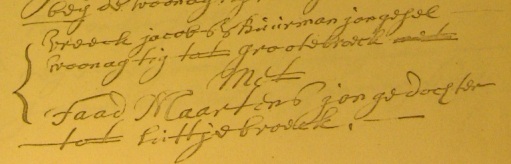 beij de woonag
Vreeck jacobs Buurman jongesel
woonagtig tot grootebroeck met
Met
Faad Maartens jongedochter
tot Luttjebroeck.